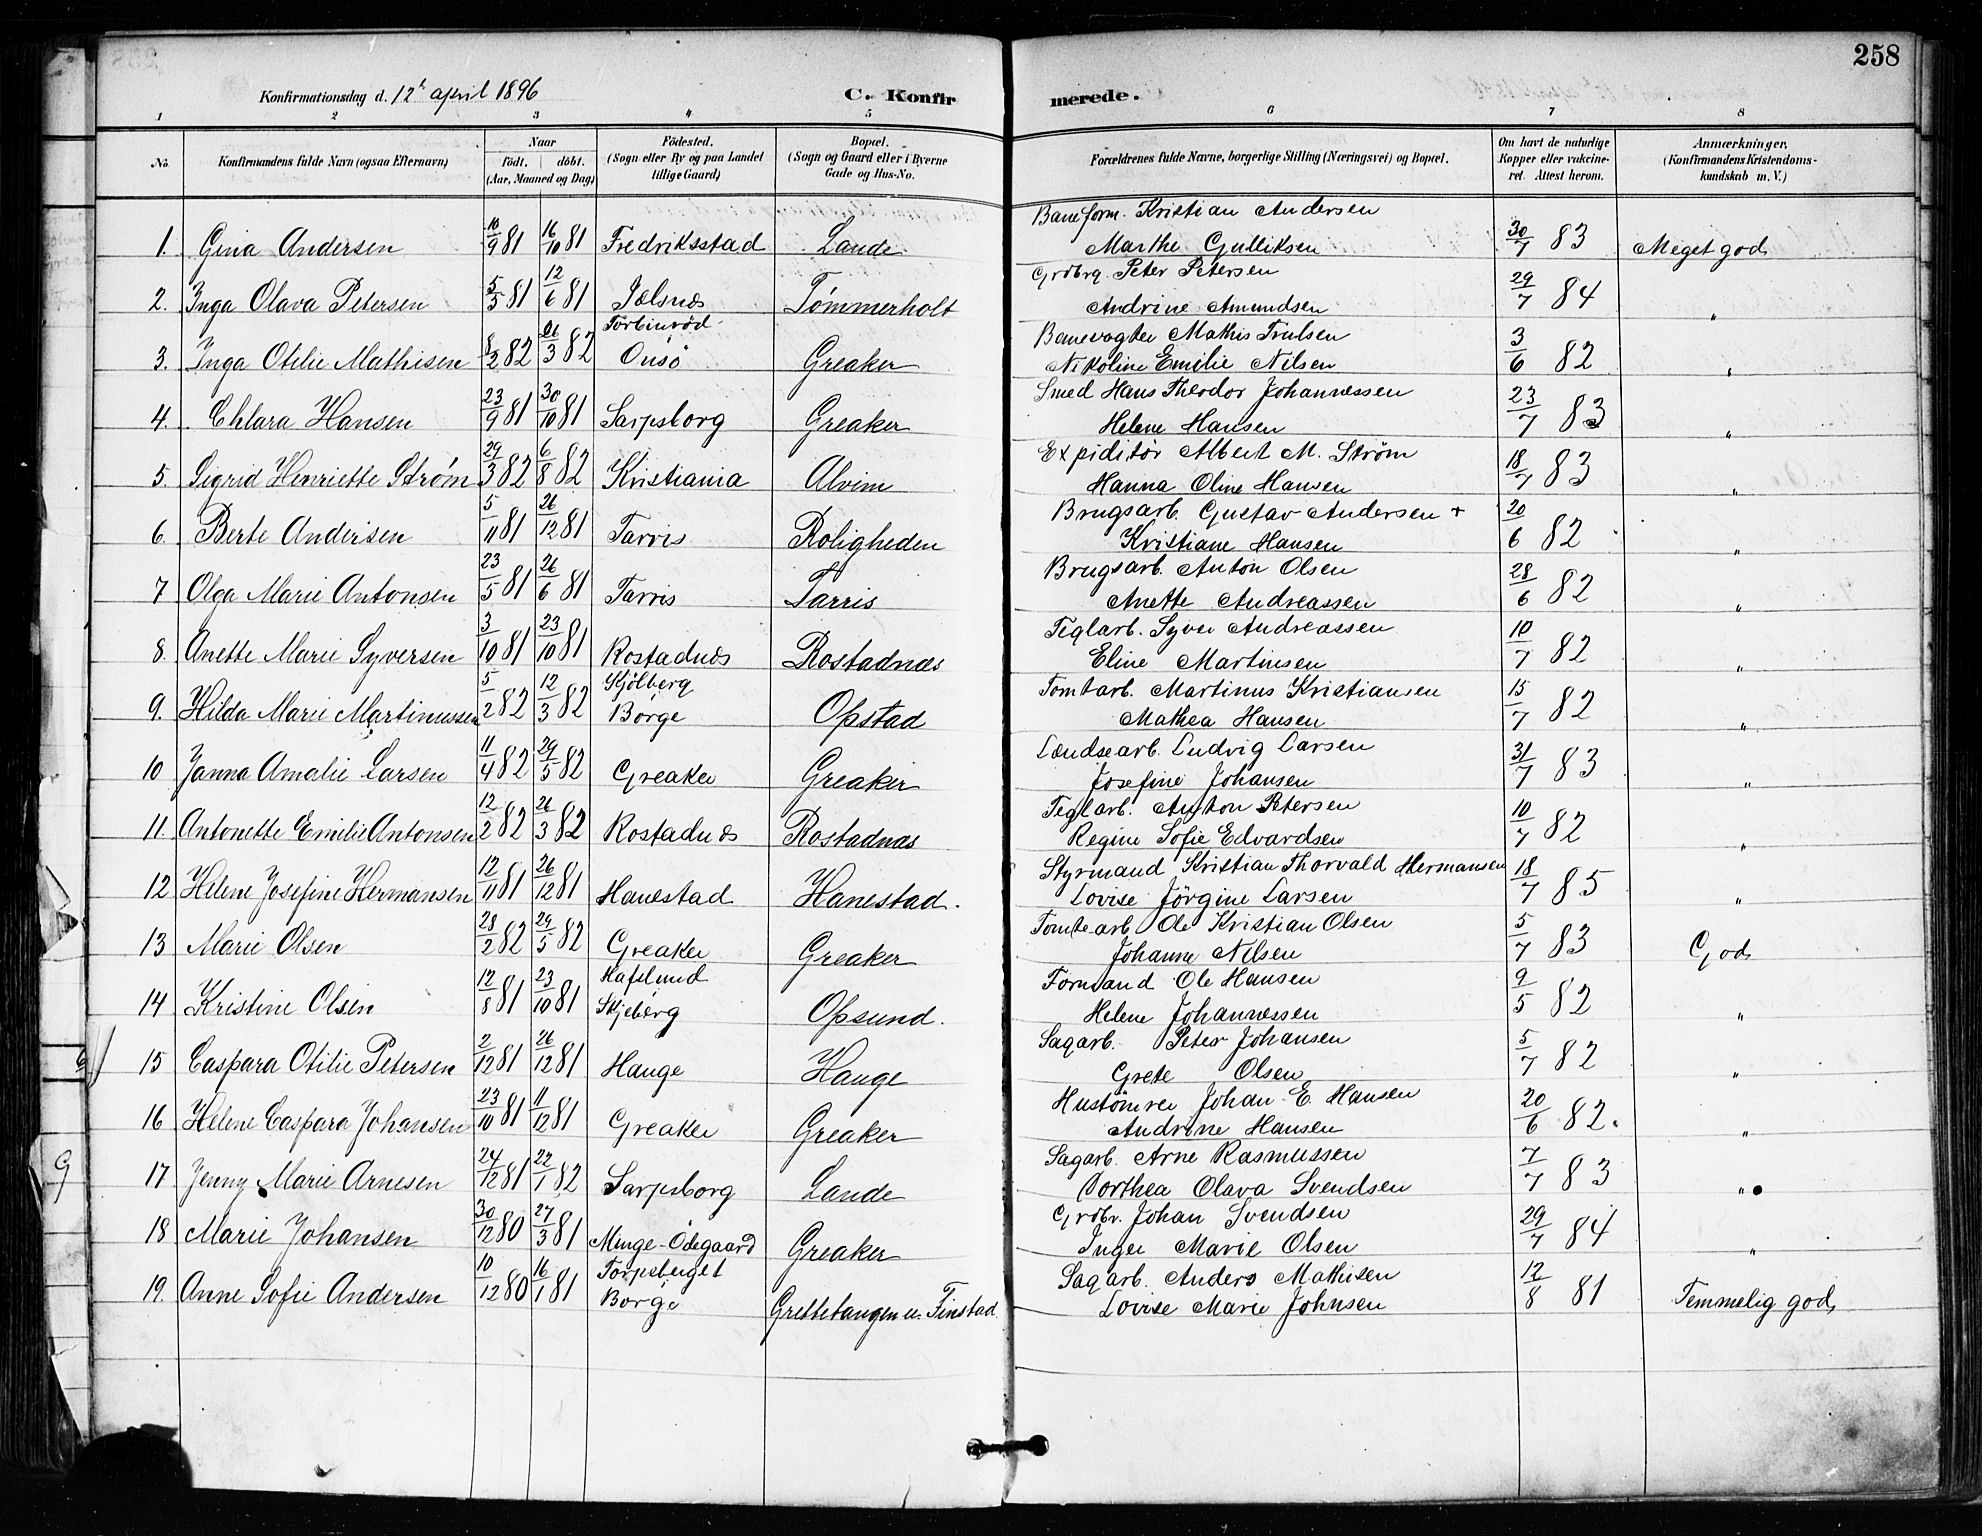 258
Konfirmationsdag d. 12' april 1896
C. Konfirmerede.
1 2 3 4 5 6 7 8
No. Konfirmandens fulde Navn (ogsaa Efternavn) Naar födt. döbt. (Aar, Maaned og Dag) Födested. (Sogn eller By og paa Landet tillige Gaard) Bopæl. (Sogn og Gaard eller i Byerne Gade og Hus-No. Forældrenes fulde Navne, borgerlige Stilling (Næringsvei) og Bopæl. Om havt de naturlige Kopper eller vakcineret. Attest herom. Anmærkninger, (Konfirmandens Kristendomskundskab m. V.)
1. Gina Andersen 10/9 81 16/10 81 Fredriksstad Lande Baneform. Kristian Andersen
Marthe Gulliksen 30/7 83 Meget god
2. Inga Olava Petersen 5/5 81 12/6 81 Jelsnes Tømmerholt Grdbrg. Peter Petersen
Andrine Amundsen 29/7 84 "
3. Inga Otilie Mathisen 8/2 82 26/3 82 Torbinröd Onsö Greaker Banevogter Mathis Trulsen
Nikoline Emilie Nilsen 3/6 82 "
4. Chlara Hansen 23/9 81 30/10 81 Sarpsborg Greaker Smed Hans Theodor Johannessen
Helene Hansen 23/7 83 "
5. Sigrid Henriette Strøm 29/3 82 6/8 82 Kristiania Alvim Expiditör Albert M. Strøm
Hanna Oline Hansen 18/7 83 "
6. Berte Andersen 5/11 81 26/12 81 Tarris Roligheden Brugsarb. Gustav Andersen +
Kristiane Hansen 20/6 82 "
7 Olga Marie Antonsen 23/5 81 26/6 81 Tarris Tarris Brugsarb. Anton Olsen
Anette Andreassen 28/6 82 "
8. Anette Marie Syversen 3/10 81 23/10 81 Rostadnes Rostadnæs Teglarb. Syver Andreassen
Eline Martinsen 10/7 82 "
9. Hilda Marie Martinussen 5/2 82 12/3 82 Kjölberg Borge Opstad Tomtarb. Martinus Kristiansen
Mathea Hansen 15/7 82 "
10 Janna Amalie Larsen 11/4 82 29/5 82 Greaker Greaker Lændsearb. Ludvig Larsen
Josefine Johansen 31/7 83 "
11. Antonette Emilie Antonsen 12/2 82 26/3 82 Rostadnæs Rostadnæs Teglarb. Anton Petersen
Regine Sofie Edvardsen 10/7 82 "
12 Helene Josefine Hermansen 12/11 81 26/12 81 Hanestad Hanestad. Styrmand Kristian Thorvald Hermansen
Lovise Jörgine Larsen 18/7 85 "
13 Marie Olsen 28/2 82 29/5 82 Greaker Greaker Tomtearb. Ole Kristian Olsen
Johanne Nilsen 5/7 83 God
14 Kristine Olsen 12/8 81 23/10 81 Hafslund Skjeberg Opsund. Formand Ole Hansen
Helene Johannessen 9/5 82 "
15 Caspara Otilie Petersen 2/12 81 26/12 81 Hauge Hauge Sagarb. Peter Johansen
Grete Olsen 5/7 82 "
16 Helene Caspara Johansen 23/10 81 11/12 81 Greaker Greaker Hustömrer Johan E. Hansen
Andrine Hansen 20/6 82. "
17 Jenny Marie Arnesen 24/12 81 22/1 82 Sarpsborg Lande Sagarb. Arne Rasmussen
Dorthea Olava Svendsen 7/7 83 "
18 Marie Johansen 30/12 80 27/3 81 Minge-Ödegaard Greaker Grdbr. Johan Svendsen
Inger Marie Olsen 29/7 84 "
19. Anne Sofie Andersen 10/12 80 16/1 81 Torpsberget Borge Grettetangen u. Finstad Sagarb. Anders Mathisen
Lovise Marie Johnsen 12/8 81 Temmelig god,